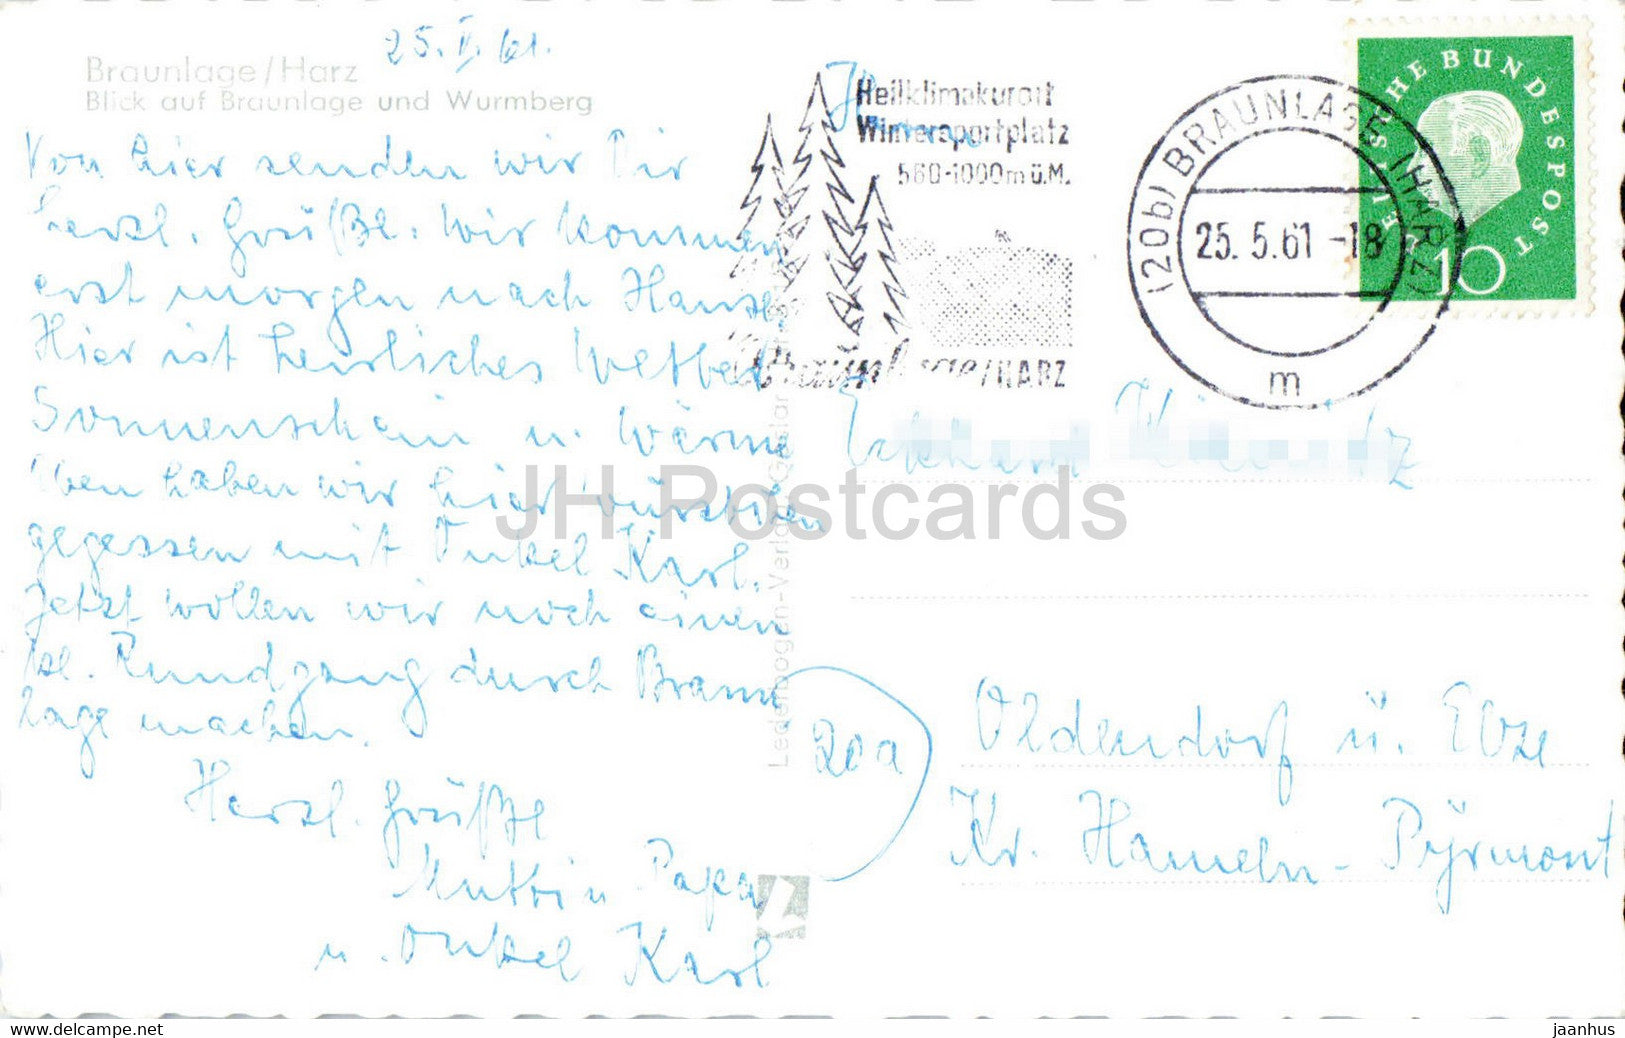 Braunlage/Harz
Blick auf Braunlage und Wurmberg
25. V. 61.
Von hier senden wir Dir
herzl. Grüße. Wir kommen
erst morgen nach Hause.
Hier ist herrliches Wetter
Sonnenschein u. Wärme
Eben haben wir hier
gegessen mit Onkel Karl.
Jetzt wollen wir noch einen
kl. Rundgang durch Braun
lage machen.
Herzl. Grüße
Mutti u. Papa
u. Onkel Karl
Heilklimakurort
Wintersportplatz
560-1000 m ü.M.
Braunlage/HARZ
(20b) BRAUNLAGE (HARZ)
25.5.61-18
m
DEUTSCHE BUNDESPOST
10
Herrn
20a
Oldendorf ü. Elze
Kr. Hameln-Pyrmont
JH Postcards
HipPostcard.com
jaanhus